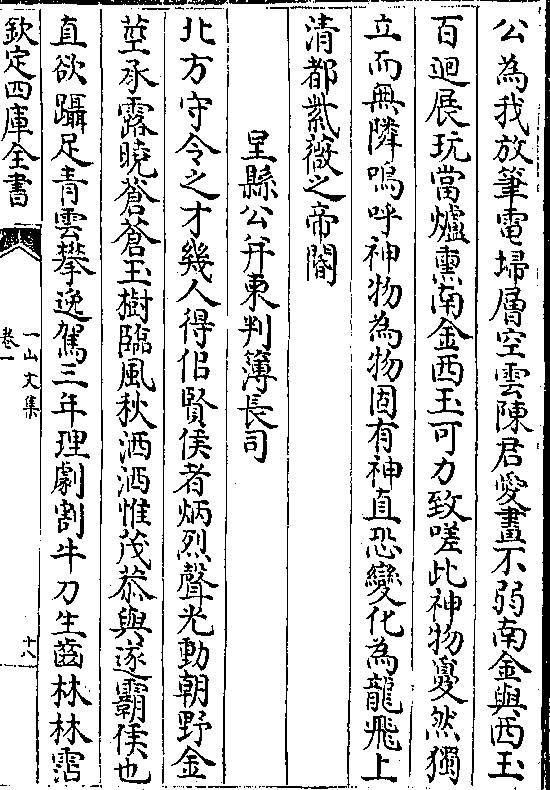 公為我放筆電埽層空雲陳君愛畫不弱南金與西玉
百迴展玩當爐熏南金西玉可力致嗟此神物戞然獨
立而無隣嗚呼神物為物固有神直恐變化為龍飛上
清都紫薇之帝閽
呈縣公并東判簿長司
北方守令之才幾人得侣賢侯者炳烈聲光動朝野金
莖承露曉蒼蒼玉樹臨風秋洒洒惟茂恭與遂霸侯也
直欲躡足青雲攀逸駕三年理劇割牛刀生齒林林霑
欽定四庫全書
一山文集
卷一
十八